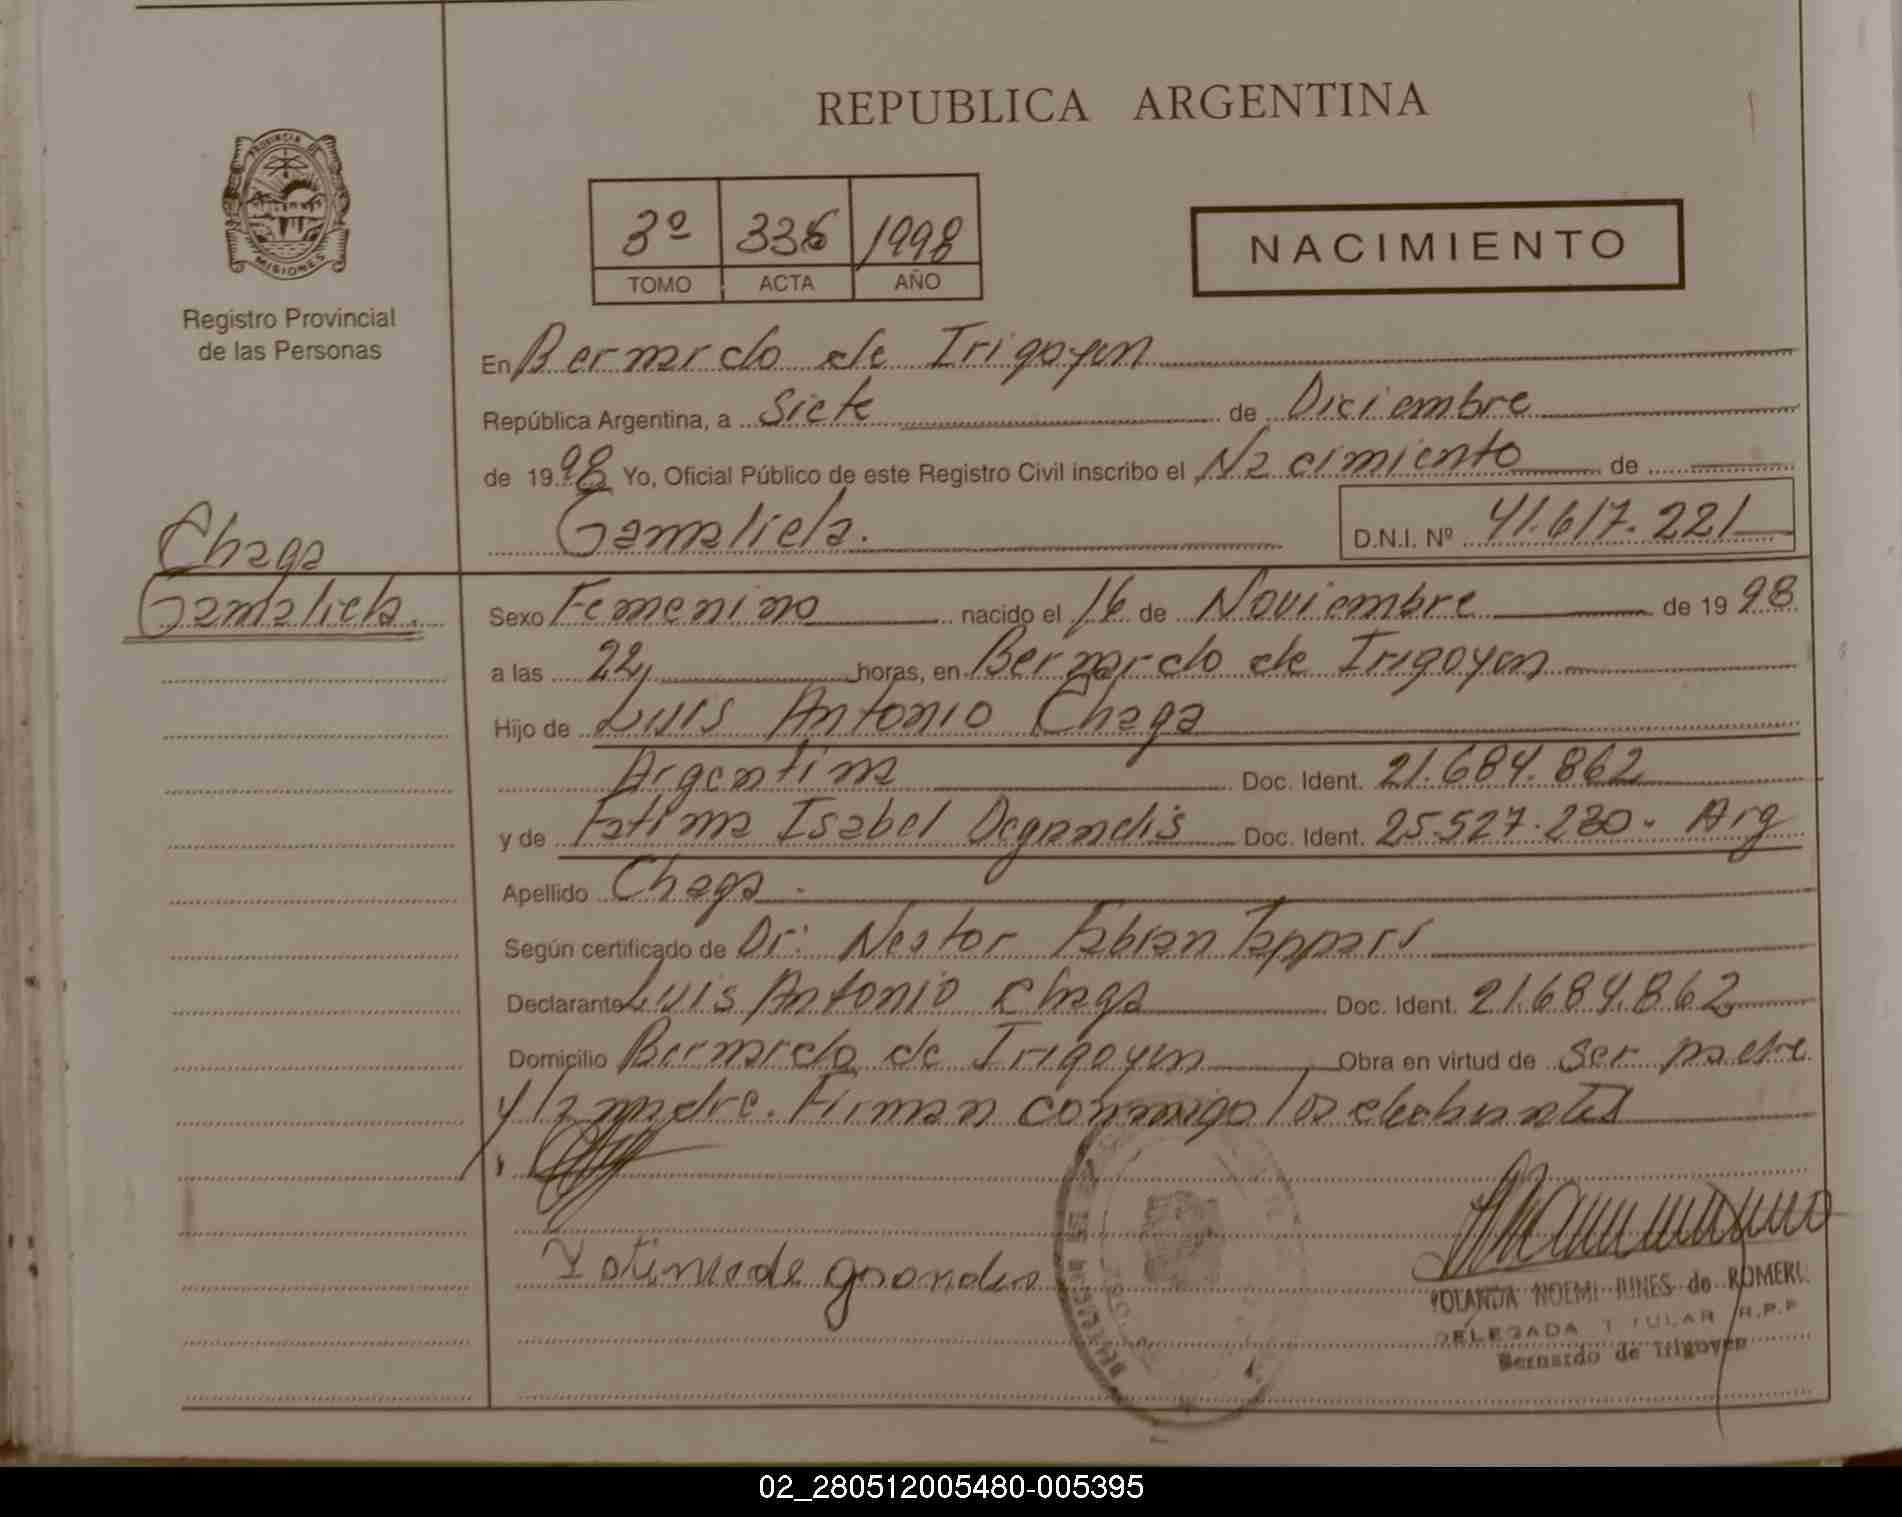 REPUBLICA ARGENTINA
PROVINCIA DE
MISIONES
Registro Provincial
de las Personas
3º 336 1998
TOMO ACTA AÑO
NACIMIENTO
En Bernardo de Irigoyen
República Argentina, a Siete de Diciembre
de 1998 Yo, Oficial Público de este Registro Civil inscribo el Nacimiento de
Gamaliela. D.N.I. Nº 41.617.221
Chaga
Gamaliela.
Sexo Femenino nacido el 16 de Noviembre de 1998
a las 22 horas, en Bernardo de Irigoyen
Hijo de Luis Antonio Chaga
Argentina Doc. Ident. 21.684.862
y de Fatima Isabel Degrandis Doc. Ident. 25.527.230. Arg
Apellido Chaga.
Según certificado de Dr: Nestor Fabian Tappari
Declarante Luis Antonio Chaga Doc. Ident. 21.684.862
Domicilio Bernardo de Irigoyen Obra en virtud de ser padre
y la madre. Firman conmigo los
YOLANDA NOEMI JUNES de ROMERO
DELEGADA TITULAR R.P.P
Bernardo de Irigoyen
02_280512005480-005395